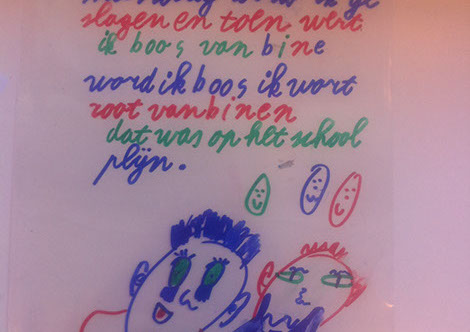 slagen en toen wert
ik boos van bine
word ik boos ik wort
root van binen
dat was op het school
plijn.